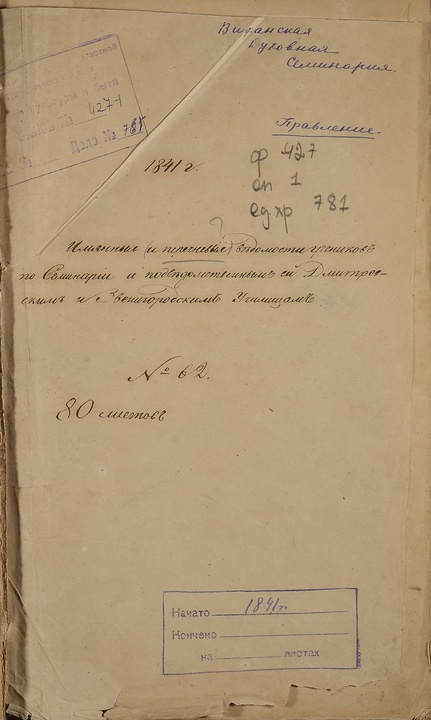 Виѳанская
Духовная
Семинария.
Правление.
быта
№ 4271
Дела № 781
№
1841 г.
ф 427
оп 1
ед хр 781
?
Имянные (и перечневыя) вѣдомости учениковъ
по Семинаріи и подвѣдомственнымъ ей Дмитров-
скимъ и Звенигородскимъ Училищамъ
№ 62.
80 листовъ
Начато 1841 г.
Кончено
на листах